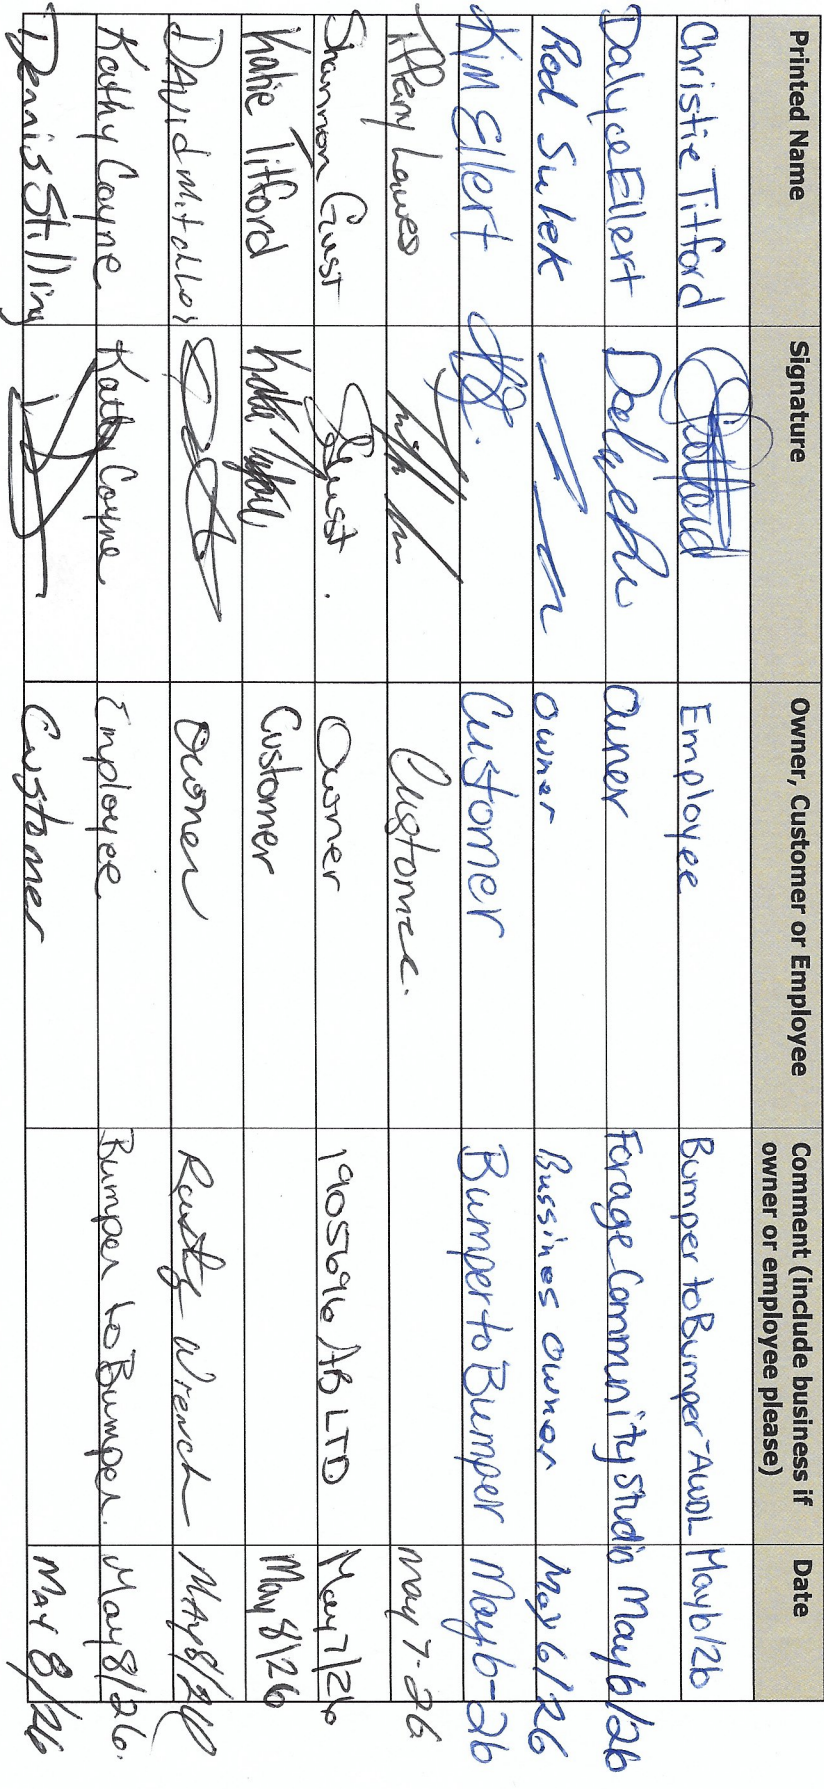 Printed Name Signature Owner, Customer or Employee Comment (include business if owner or employee please) Date
Christie Titford Employee Bumper to Bumper-AWOL May 6/26
Dalyce Ellert owner Forage Community Studio May 6/26
Rod Sulek owner Bussines owner May 6/26
Kim Ellert Customer Bumper to Bumper May 6-26
Tiffany Lawes Customer. May 7-26
Shannon Gust Gust. Owner 1905696 AB LTD May 7/26
Katie Titford Katie Customer May 8/26
David owner Rusty Wrench May 8/26
Kathy Coyne Kathy Coyne Employee Bumper to Bumper. May 8/26.
Dennis Stilling Customer May 8/26